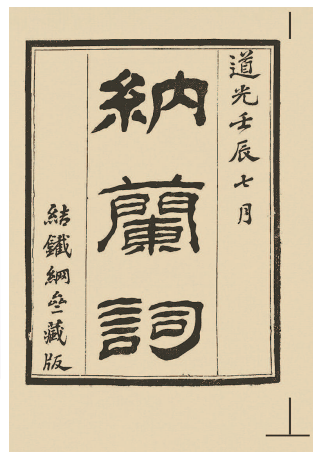 道光壬辰七月
納蘭詞
結鐵網齋藏版